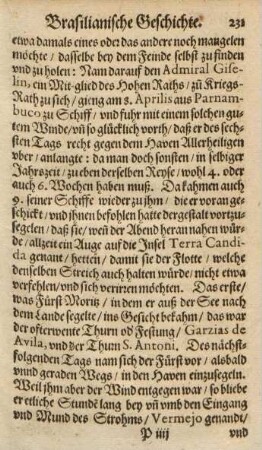 Brasilianische Geschichte. 231
etwa damals eines oder das andere noch mangelen
möchte / dasselbe bey dem Feinde selbst zu finden
und zu holen: Nam darauf den Admiral Gise-
lin, ein Mit-glied des Hohen Raths / zů Kriegs-
Rath zu sich / gieng am 8. Aprilis aus Parnam-
buco zu Schiff / und fuhr mit einem solchen gu-
tem Winde / uñ so glücklich vorth / daß er des sech-
sten Tags recht gegen dem Haven Allerheiligen
uber / anlangte: da man doch sonsten / in selbiger
Jahrszeit / zu eben derselben Reyse / wohl 4. oder
auch 6. Wochen haben muß. Da kahmen auch
9. seiner Schiffe wieder zu jhm / die er voran ge-
schickt / und jhnen befohlen hatte dergestalt vortzu-
segelen / daß sie / weñ der Abend heran nahen wür-
de / allzeit ein Auge auf die Insel Terra Candi-
da genant / hetten / damit sie der Flotte / welche
denselben Streich auch halten würde / nicht etwa
verfehlen / und sich verirren möchten. Das erste /
was Fürst Moritz / in dem er auß der See nach
dem Lande segelte / ins Gesicht bekahm / das war
der ofterwente Thurn od Festung / Garzias de
Avila, und der Thurn S. Antoni. Des nächst-
folgenden Tags nam sich der Fürst vor / alsbald
unnd geraden Wegs / in den Haven einzusegeln.
Weil jhm aber der Wind entgegen war / so bliebe
er etliche Stundē lang bey uñ umb den Eingang
und Mund des Strohms / Vermejo genandt /
P iiij und